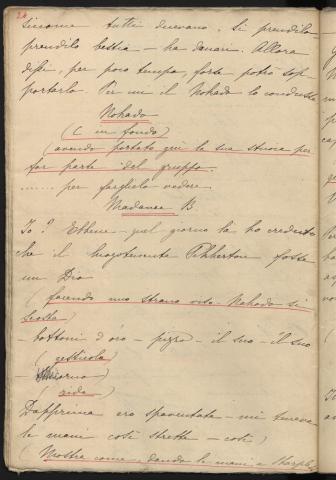 24
siccome tutti dicevano, si prendilo
prendilo bestia – ha danari. Allora
disse, per poco tempo, forse potrò sop-
portarlo. Per un il Nohado lo condusse
Nohado
(C in fondo)
(avendo portato qui la sua stuoia per
far parte del gruppo.
...... per farglielo vedere.
Madama B
Io? Ebbene – quel giorno la ho creduto
che il luogotenente Pinkerton fosse
un Dio
(facendo uno strano viso Nohado si
scosta)
– bottoni d'oro – pizzo – il suo – il suo
(gesticola)
(ride)
Dapprima ero spaventata – mi teneva
le mani così strette – così)
(Mostra come, dando le mani a Sharpless